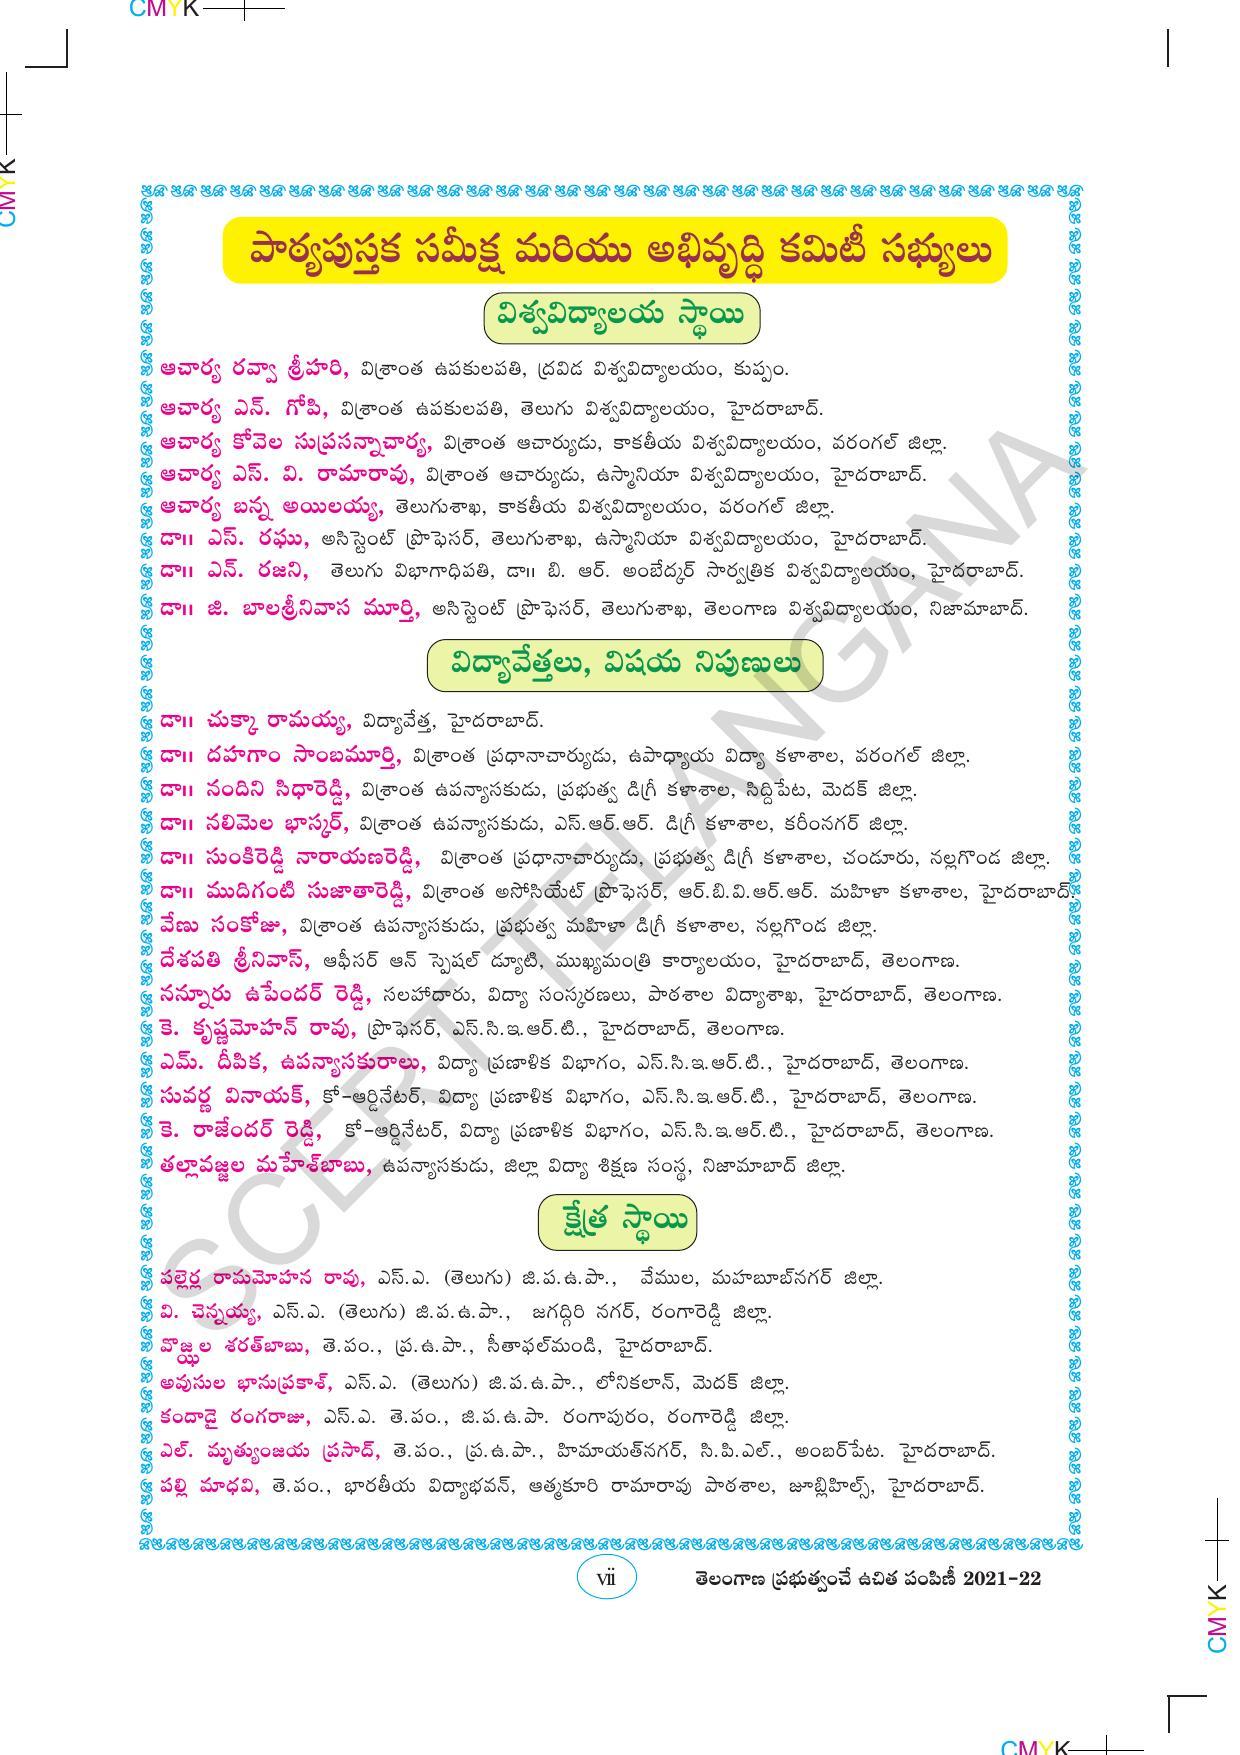 CMYK
CMYK
పాఠ్యపుస్తక సమీక్ష మరియు అభివృద్ధి కమిటీ సభ్యులు
విశ్వవిద్యాలయ స్థాయి
ఆచార్య రవ్వా శ్రీహరి, విశ్రాంత ఉపకులపతి, ద్రవిడ విశ్వవిద్యాలయం, కుప్పం.
ఆచార్య ఎన్. గోపి, విశ్రాంత ఉపకులపతి, తెలుగు విశ్వవిద్యాలయం, హైదరాబాద్.
ఆచార్య కోవెల సుప్రసన్నాచార్య, విశ్రాంత ఆచార్యుడు, కాకతీయ విశ్వవిద్యాలయం, వరంగల్ జిల్లా.
ఆచార్య ఎస్. వి. రామారావు, విశ్రాంత ఆచార్యుడు, ఉస్మానియా విశ్వవిద్యాలయం, హైదరాబాద్.
ఆచార్య బన్న అయిలయ్య, తెలుగుశాఖ, కాకతీయ విశ్వవిద్యాలయం, వరంగల్ జిల్లా.
డా॥ ఎస్. రఘు, అసిస్టెంట్ ప్రొఫెసర్, తెలుగుశాఖ, ఉస్మానియా విశ్వవిద్యాలయం, హైదరాబాద్.
డా॥ ఎన్. రజని, తెలుగు విభాగాధిపతి, డా॥ బి. ఆర్. అంబేద్కర్ సార్వత్రిక విశ్వవిద్యాలయం, హైదరాబాద్.
డా॥ జి. బాలశ్రీనివాస మూర్తి, అసిస్టెంట్ ప్రొఫెసర్, తెలుగుశాఖ, తెలంగాణ విశ్వవిద్యాలయం, నిజామాబాద్.
విద్యావేత్తలు, విషయ నిపుణులు
డా॥ చుక్కా రామయ్య, విద్యావేత్త, హైదరాబాద్.
డా॥ దహగాం సాంబమూర్తి, విశ్రాంత ప్రధానాచార్యుడు, ఉపాధ్యాయ విద్యా కళాశాల, వరంగల్ జిల్లా.
డా॥ నందిని సిధారెడ్డి, విశ్రాంత ఉపన్యాసకుడు, ప్రభుత్వ డిగ్రీ కళాశాల, సిద్దిపేట, మెదక్ జిల్లా.
డా॥ నలిమెల భాస్కర్, విశ్రాంత ఉపన్యాసకుడు, ఎస్.ఆర్.ఆర్. డిగ్రీ కళాశాల, కరీంనగర్ జిల్లా.
డా॥ సుంకిరెడ్డి నారాయణరెడ్డి, విశ్రాంత ప్రధానాచార్యుడు, ప్రభుత్వ డిగ్రీ కళాశాల, చండూరు, నల్లగొండ జిల్లా.
డా॥ ముదిగంటి సుజాతారెడ్డి, విశ్రాంత అసోసియేట్ ప్రొఫెసర్, ఆర్.బి.వి.ఆర్.ఆర్. మహిళా కళాశాల, హైదరాబాద్.
వేణు సంకోజు, విశ్రాంత ఉపన్యాసకుడు, ప్రభుత్వ మహిళా డిగ్రీ కళాశాల, నల్లగొండ జిల్లా.
దేశపతి శ్రీనివాస్, ఆఫీసర్ ఆన్ స్పెషల్ డ్యూటి, ముఖ్యమంత్రి కార్యాలయం, హైదరాబాద్, తెలంగాణ.
నన్నూరు ఉపేందర్ రెడ్డి, సలహాదారు, విద్యా సంస్కరణలు, పాఠశాల విద్యాశాఖ, హైదరాబాద్, తెలంగాణ.
కె. కృష్ణమోహన్ రావు, ప్రొఫెసర్, ఎస్.సి.ఇ.ఆర్.టి., హైదరాబాద్, తెలంగాణ.
ఎమ్. దీపిక, ఉపన్యాసకురాలు, విద్యా ప్రణాళిక విభాగం, ఎస్.సి.ఇ.ఆర్.టి., హైదరాబాద్, తెలంగాణ.
సువర్ణ వినాయక్, కో-ఆర్డినేటర్, విద్యా ప్రణాళిక విభాగం, ఎస్.సి.ఇ.ఆర్.టి., హైదరాబాద్, తెలంగాణ.
కె. రాజేందర్ రెడ్డి, కో-ఆర్డినేటర్, విద్యా ప్రణాళిక విభాగం, ఎస్.సి.ఇ.ఆర్.టి., హైదరాబాద్, తెలంగాణ.
తల్లావజ్జల మహేశ్‌బాబు, ఉపన్యాసకుడు, జిల్లా విద్యా శిక్షణ సంస్థ, నిజామాబాద్ జిల్లా.
క్షేత్ర స్థాయి
పల్లెర్ల రామమోహన రావు, ఎస్.ఎ. (తెలుగు) జి.ప.ఉ.పా., వేముల, మహబూబ్‌నగర్ జిల్లా.
వి. చెన్నయ్య, ఎస్.ఎ. (తెలుగు) జి.ప.ఉ.పా., జగద్గిరి నగర్, రంగారెడ్డి జిల్లా.
వొజ్ఝల శరత్‌బాబు, తె.పం., ప్ర.ఉ.పా., సీతాఫల్‌మండి, హైదరాబాద్.
అవుసుల భానుప్రకాశ్, ఎస్.ఎ. (తెలుగు) జి.ప.ఉ.పా., లోనికలాన్, మెదక్ జిల్లా.
కందాడై రంగరాజు, ఎస్.ఎ. తె.పం., జి.ప.ఉ.పా. రంగాపురం, రంగారెడ్డి జిల్లా.
ఎల్. మృత్యుంజయ ప్రసాద్, తె.పం., ప్ర.ఉ.పా., హిమాయత్‌నగర్, సి.పి.ఎల్., అంబర్‌పేట. హైదరాబాద్.
పల్లి మాధవి, తె.పం., భారతీయ విద్యాభవన్, ఆత్మకూరి రామారావు పాఠశాల, జూబ్లిహిల్స్, హైదరాబాద్.
SCERT TELANGANA
vii
తెలంగాణ ప్రభుత్వంచే ఉచిత పంపిణీ 2021-22
CMYK
CMYK